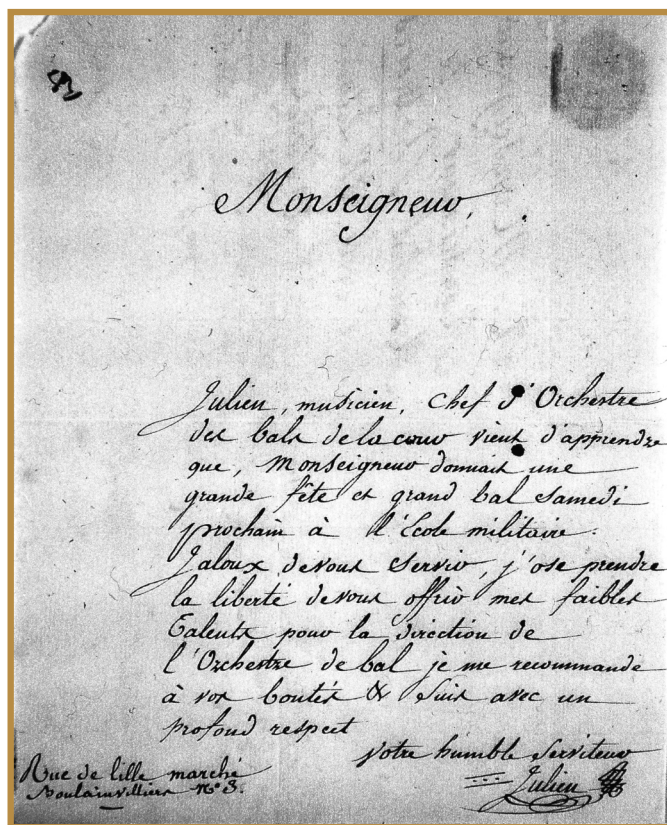 Monseigneur,
Julien, musicien, Chef d'Orchestre
des bals de la cour vient d'apprendre
que, Monseigneur donnait une
grande fête et grand bal samedi
prochain à l'École militaire.
Jaloux de vous servir, j'ose prendre
la liberté de vous offrir mes faibles
Talents pour la direction de
l'Orchestre de bal je me recommande
à vos bontés & suis avec un
profond respect
votre humble Serviteur
Julien
Rue de lille marché
Boulainvilliers N° 3.